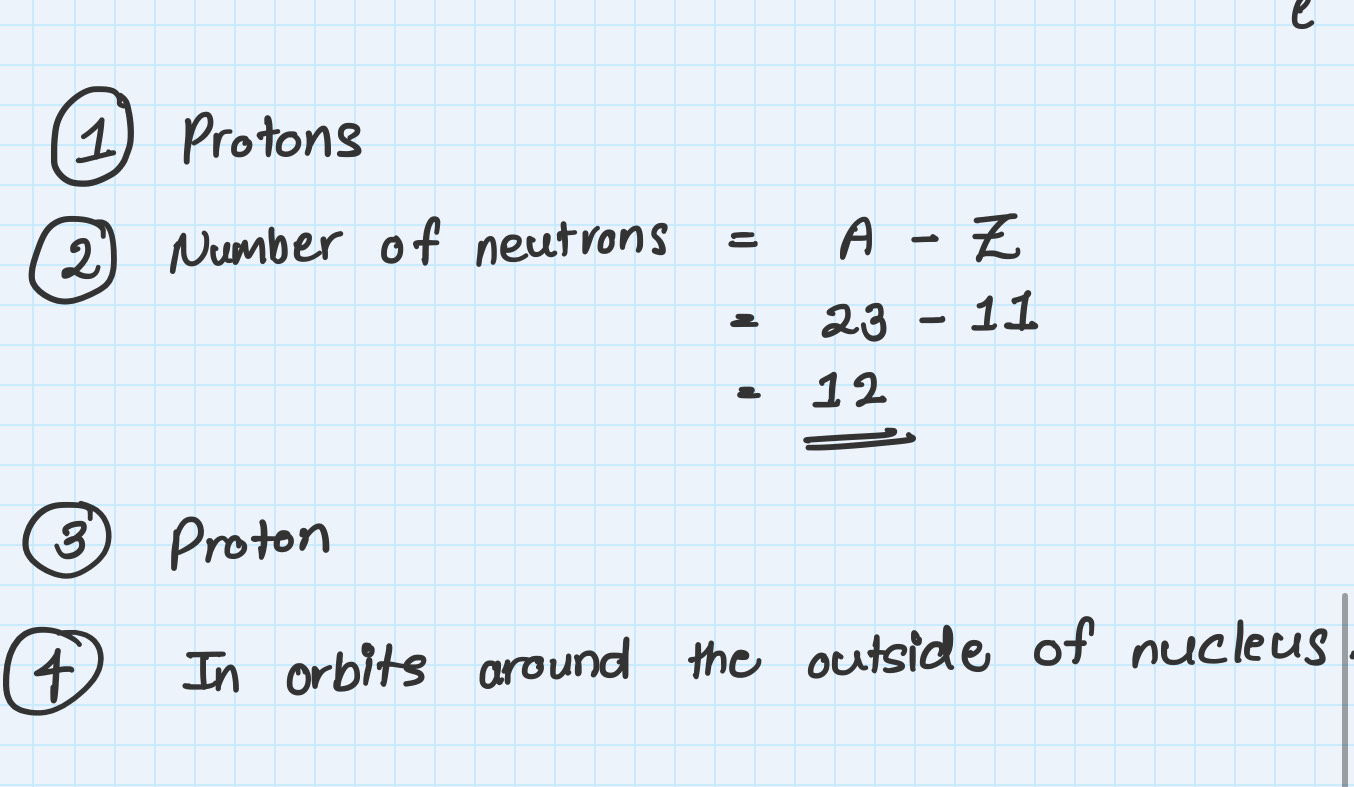 e
1 Protons
2 Number of neutrons = A - Z
= 23 - 11
= 12
3 Proton
4 In orbits around the outside of nucleus.